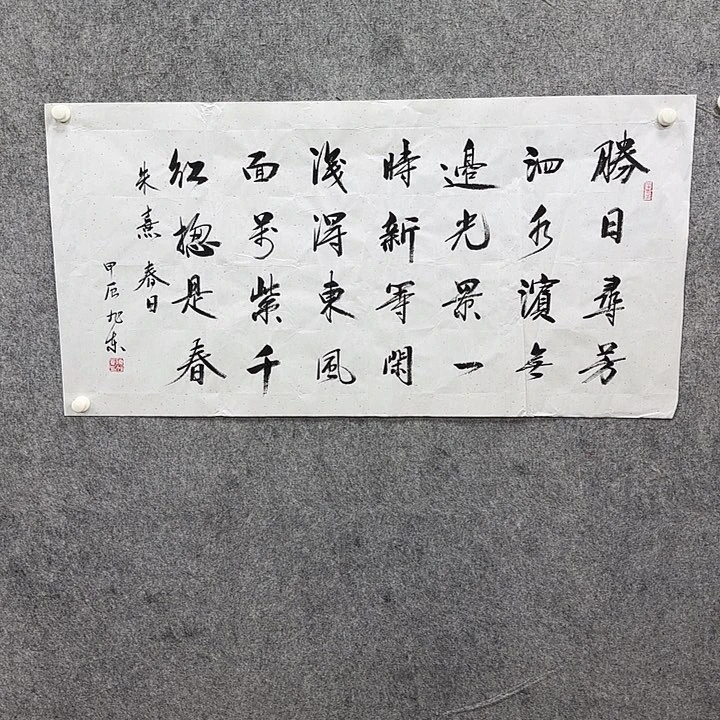 勝日尋芳
泗水濱無
邊光景一
時新等閑
識得東風
面萬紫千
紅總是春
朱熹 春日
甲辰 旭东